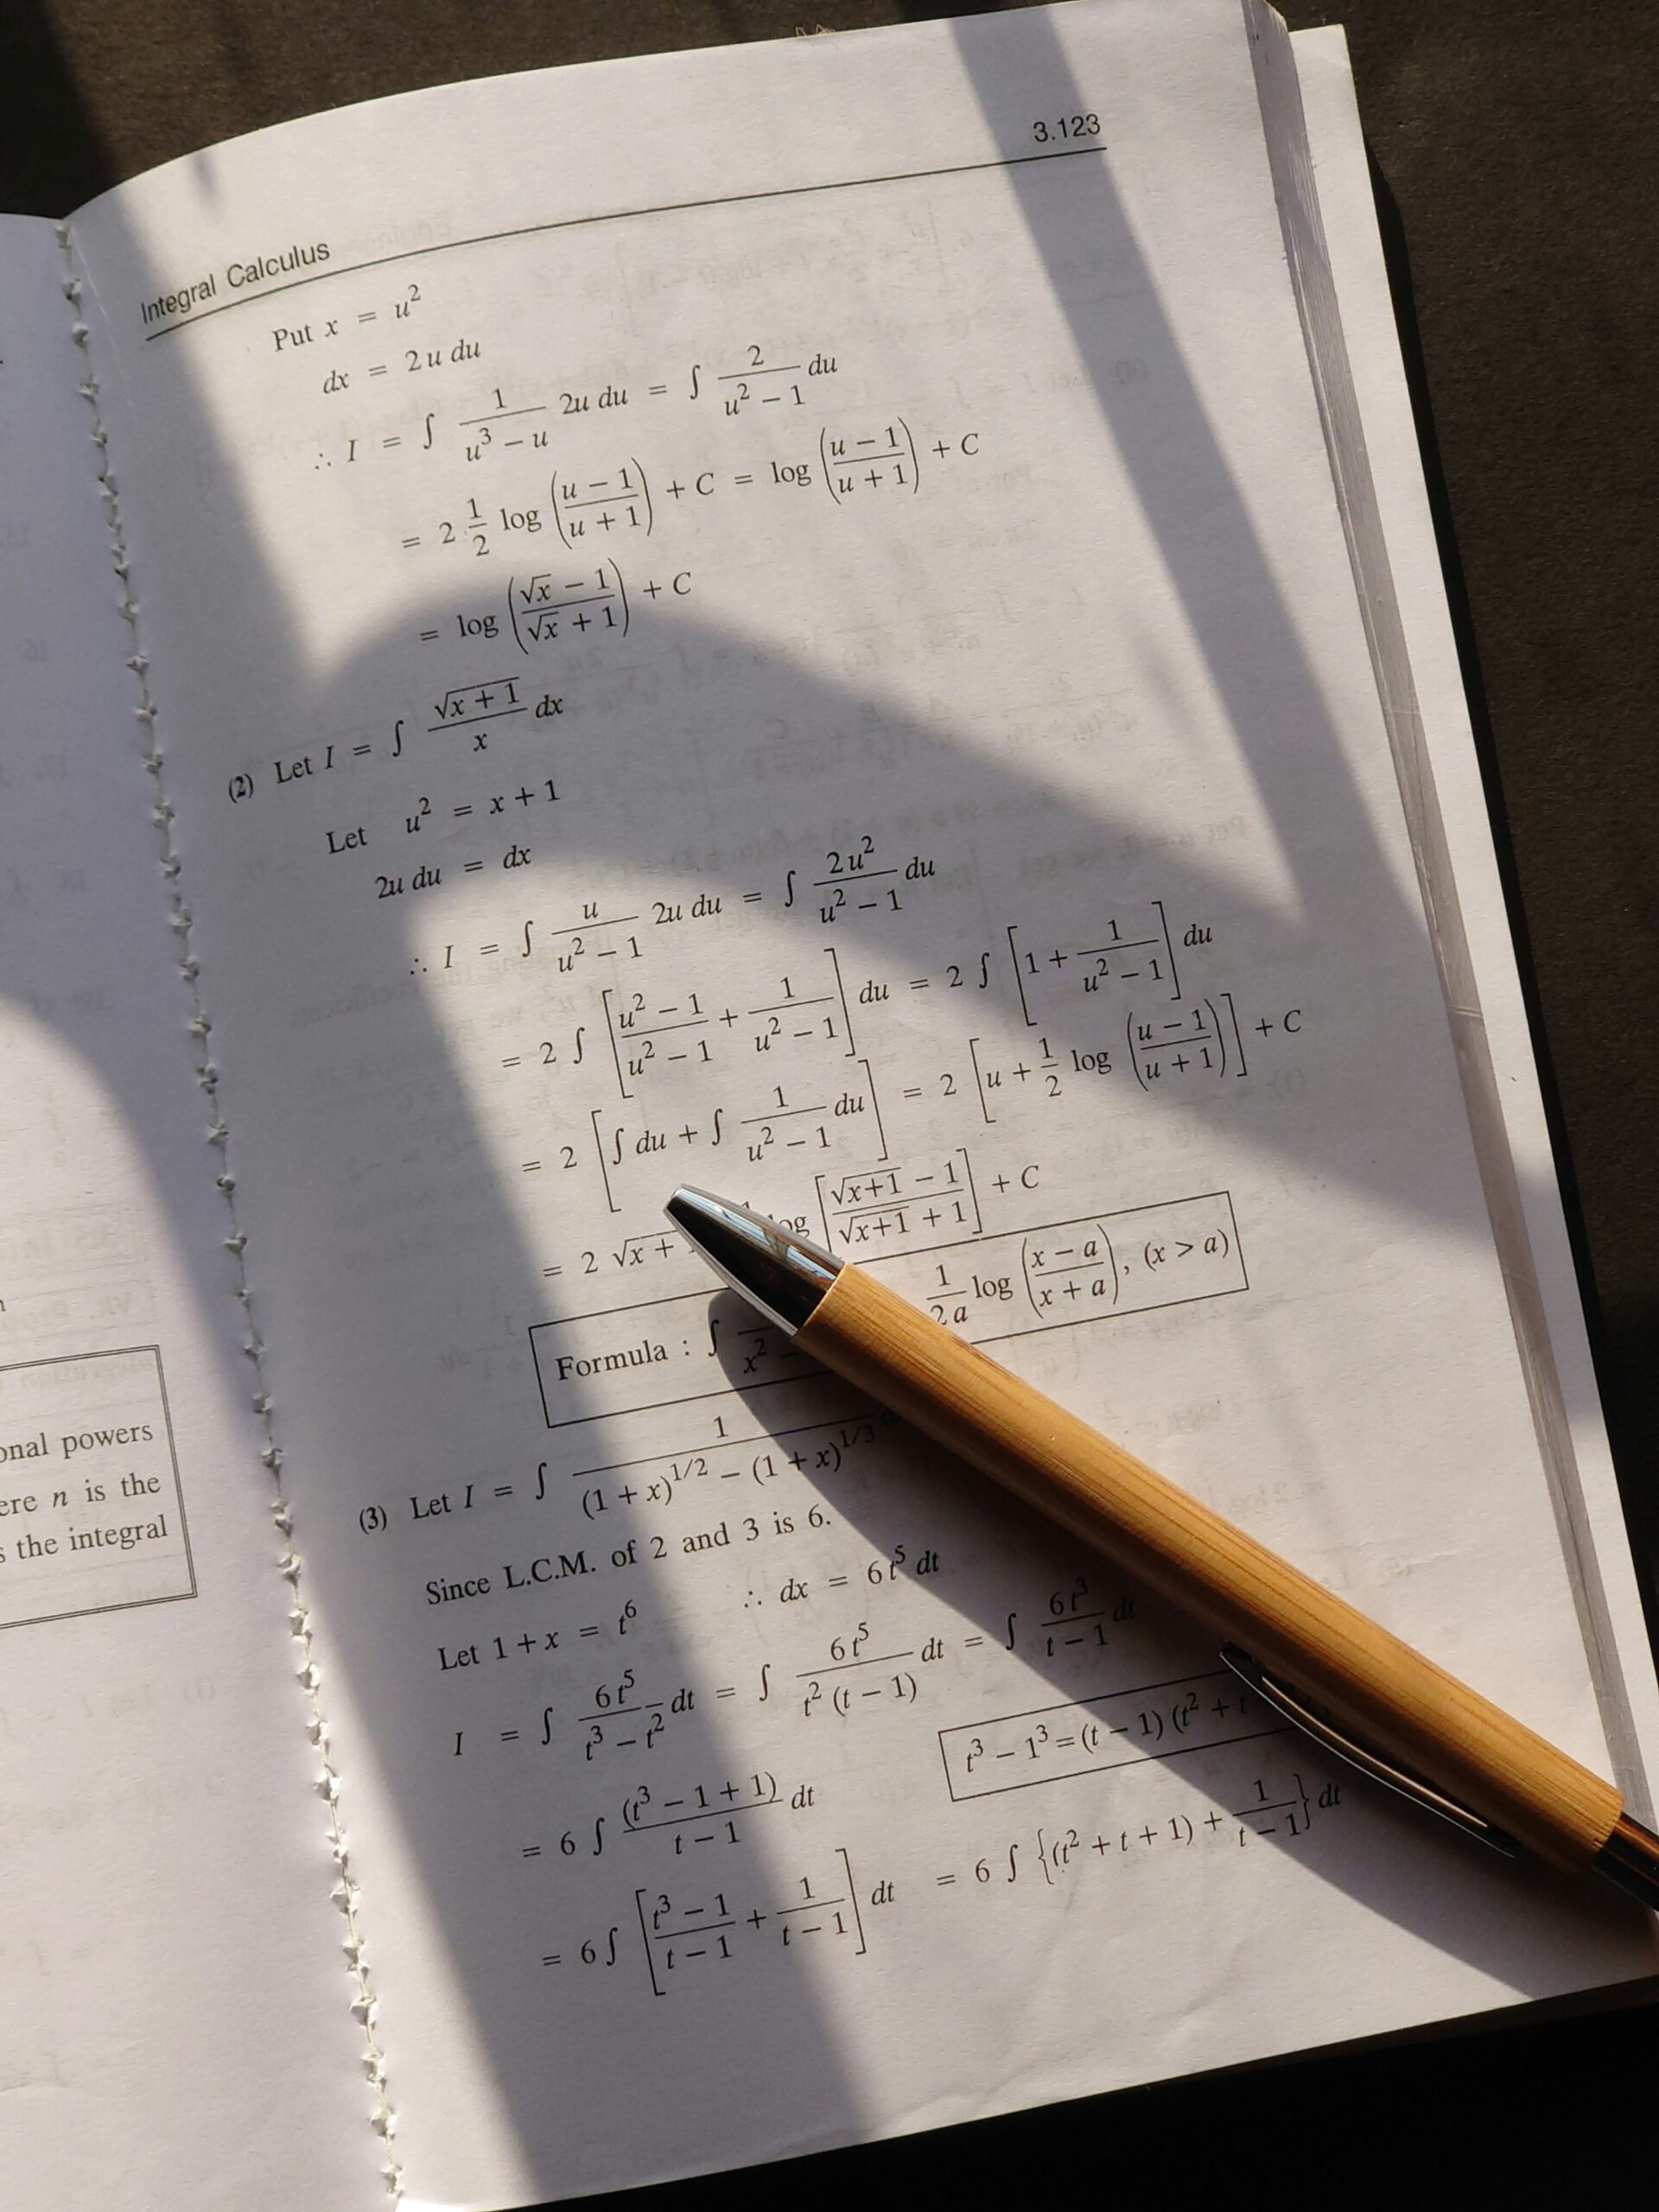 3.123
Integral Calculus
Put x = u²
dx = 2 u du
∴ I = ∫ 1/(u³ − u) 2u du = ∫ 2/(u² − 1) du
= 2 1/2 log ((u − 1)/(u + 1)) + C = log ((u − 1)/(u + 1)) + C
= log ((√x − 1)/(√x + 1)) + C
(2) Let I = ∫ √(x + 1)/x dx
Let u² = x + 1
2u du = dx
∴ I = ∫ u/(u² − 1) 2u du = ∫ 2 u²/(u² − 1) du
= 2 ∫ [(u² − 1)/(u² − 1) + 1/(u² − 1)] du = 2 ∫ [1 + 1/(u² − 1)] du
= 2 [∫ du + ∫ 1/(u² − 1) du] = 2 [u + 1/2 log ((u − 1)/(u + 1))] + C
= 2 √x + [(√(x+1) − 1)/(√(x+1) + 1)] + C
Formula : ∫ x² − 1/(2 a) log ((x − a)/(x + a)), (x > a)
(3) Let I = ∫ 1/((1 + x)^1/2 − (1 + x)^1/3)
Since L.C.M. of 2 and 3 is 6.
Let 1 + x = t⁶ ∴ dx = 6 t⁵ dt
I = ∫ 6 t⁵/(t³ − t²) dt = ∫ 6 t⁵/(t² (t − 1)) dt = ∫ 6 t³/(t − 1) dt
t³ − 1³ = (t − 1) (t² + t
= 6 ∫ (t³ − 1 + 1)/(t − 1) dt
= 6 ∫ [(t³ − 1)/(t − 1) + 1/(t − 1)] dt = 6 ∫ {(t² + t + 1) + 1/(t − 1)} dt
powers
n is the
the integral